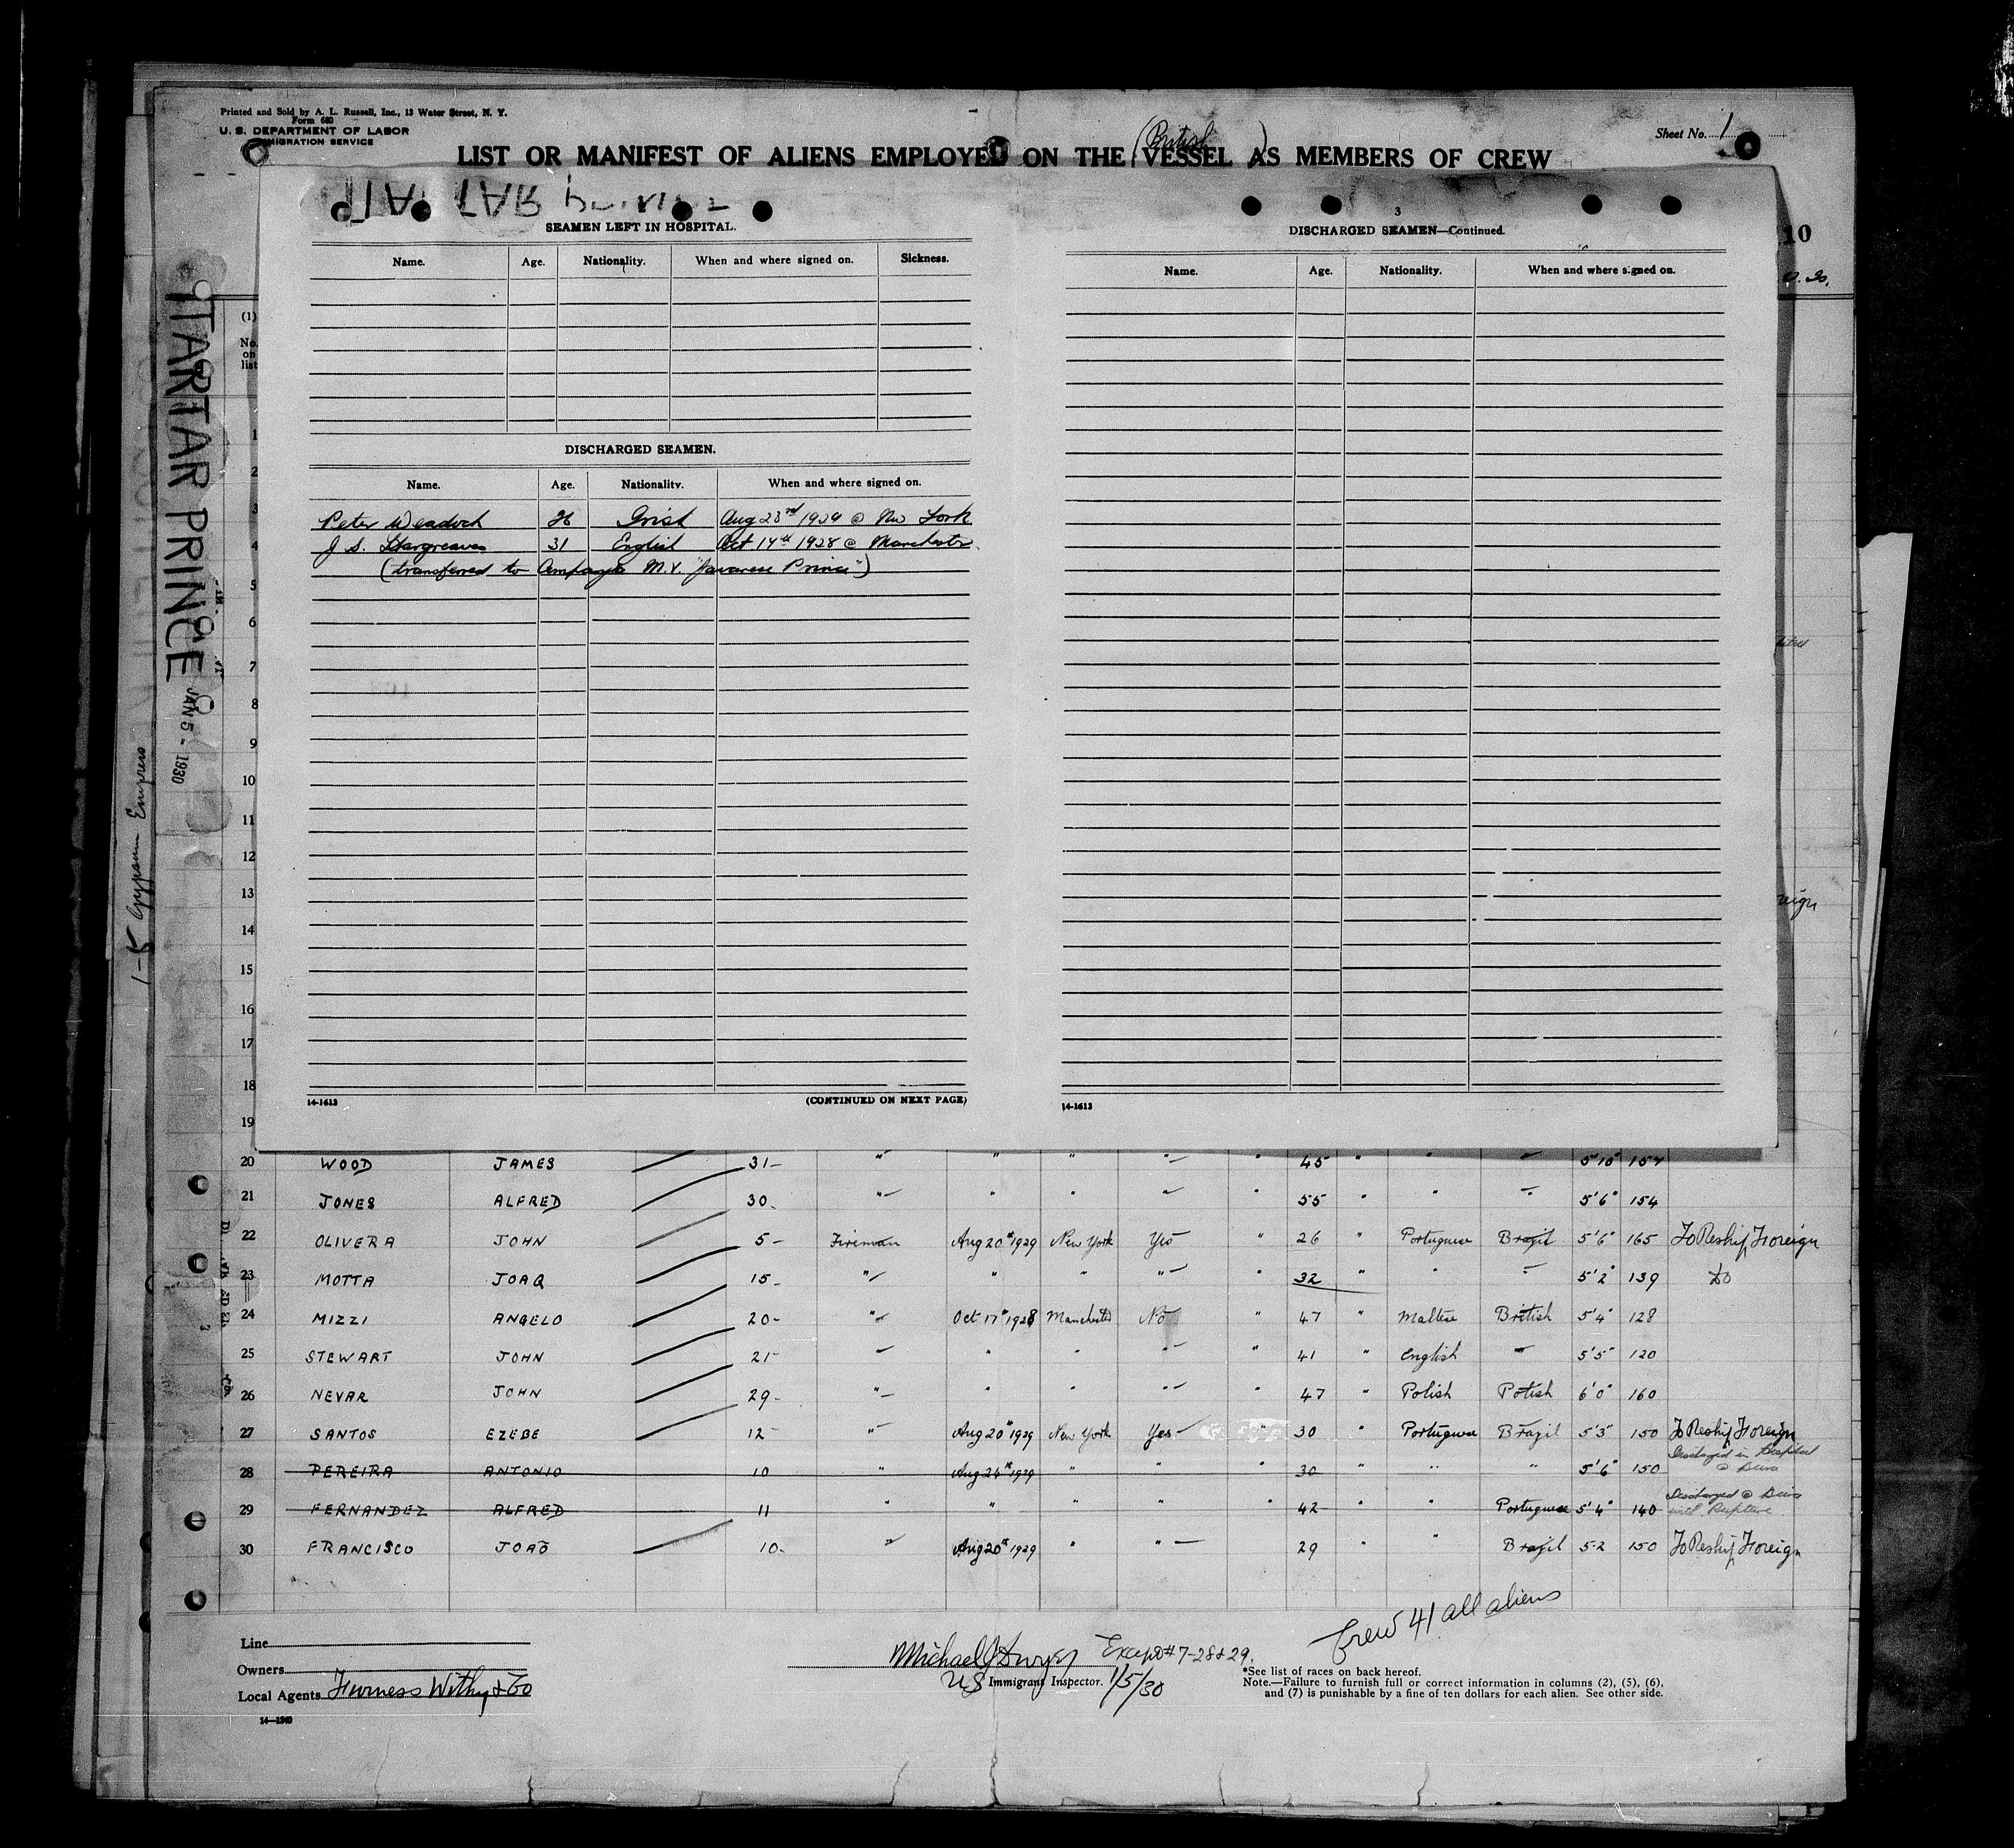 Printed and Sold by A. L. Russell, Inc., 13 Water Street, N. Y.
Form 680
U. S. DEPARTMENT OF LABOR
IMMIGRATION SERVICE
Sheet No. 1
(British)
LIST OR MANIFEST OF ALIENS EMPLOYED ON THE VESSEL AS MEMBERS OF CREW
TARTAR PRINCE
JAN 5 - 1930
1-5 Gypsum Empress
10
(1)
No. on list
SEAMEN LEFT IN HOSPITAL.
Name. Age. Nationality. When and where signed on. Sickness.
DISCHARGED SEAMEN.
Name. Age. Nationality. When and where signed on.
Peter Weadock 26 Irish Aug 23rd 1929 @ New York
J S. Hargreaves 31 English Oct 17th 1928 @ Manchester
(transferred to Company's M.V. "Javanese Prince")
14-1613
(CONTINUED ON NEXT PAGE)
3
DISCHARGED SEAMEN—Continued.
Name. Age. Nationality. When and where signed on.
14-1613
1
2
3
4
5
6
7
8
9
10
11
12
13
14
15
16
17
18
19
20 WOOD JAMES 31- " " " " " 45 " " " 5'10" 154
21 JONES ALFRED 30- " " " " " 55 " " " 5'6" 154
22 OLIVERA JOHN 5- Fireman Aug 20th 1929 New York Yes " 26 " Portuguese Brazil 5'6" 165 To Reship Foreign
23 MOTTA JOAQ 15- " " " " " 32 " " " 5'2" 139 Do
24 MIZZI ANGELO 20- " Oct 17th 1928 Manchester No " 47 " Maltese British 5'4" 128
25 STEWART JOHN 21- " " " " " 41 " English " 5'5" 120
26 NEVAR JOHN 29- " " " " 47 " Polish Polish 6'0" 160
27 SANTOS EZEBE 12- " Aug 20th 1929 New York Yes " 30 " Portuguese Brazil 5'3" 150 To Reship Foreign
28 PEREIRA ANTONIO 10 " Aug 24th 1929 " " " 30 " " " 5'6" 150 Discharged in Hospital @
29 FERNANDEZ ALFRED 11 " " " " " 42 " " Portuguese 5'4" 140 Discharged @ with Rupture
30 FRANCISCO JOAO 10- " Aug 20th 1929 " " 29 " " Brazil 5-2 150 To Reship Foreign
Crew 41 all aliens
Line
Owners
Local Agents Furness Withy & Co
14—1240
Michael J Dwyer Except # 7-28 & 29.
US Immigrant Inspector. 1/5/30
*See list of races on back hereof.
Note.—Failure to furnish full or correct information in columns (2), (5), (6),
and (7) is punishable by a fine of ten dollars for each alien. See other side.